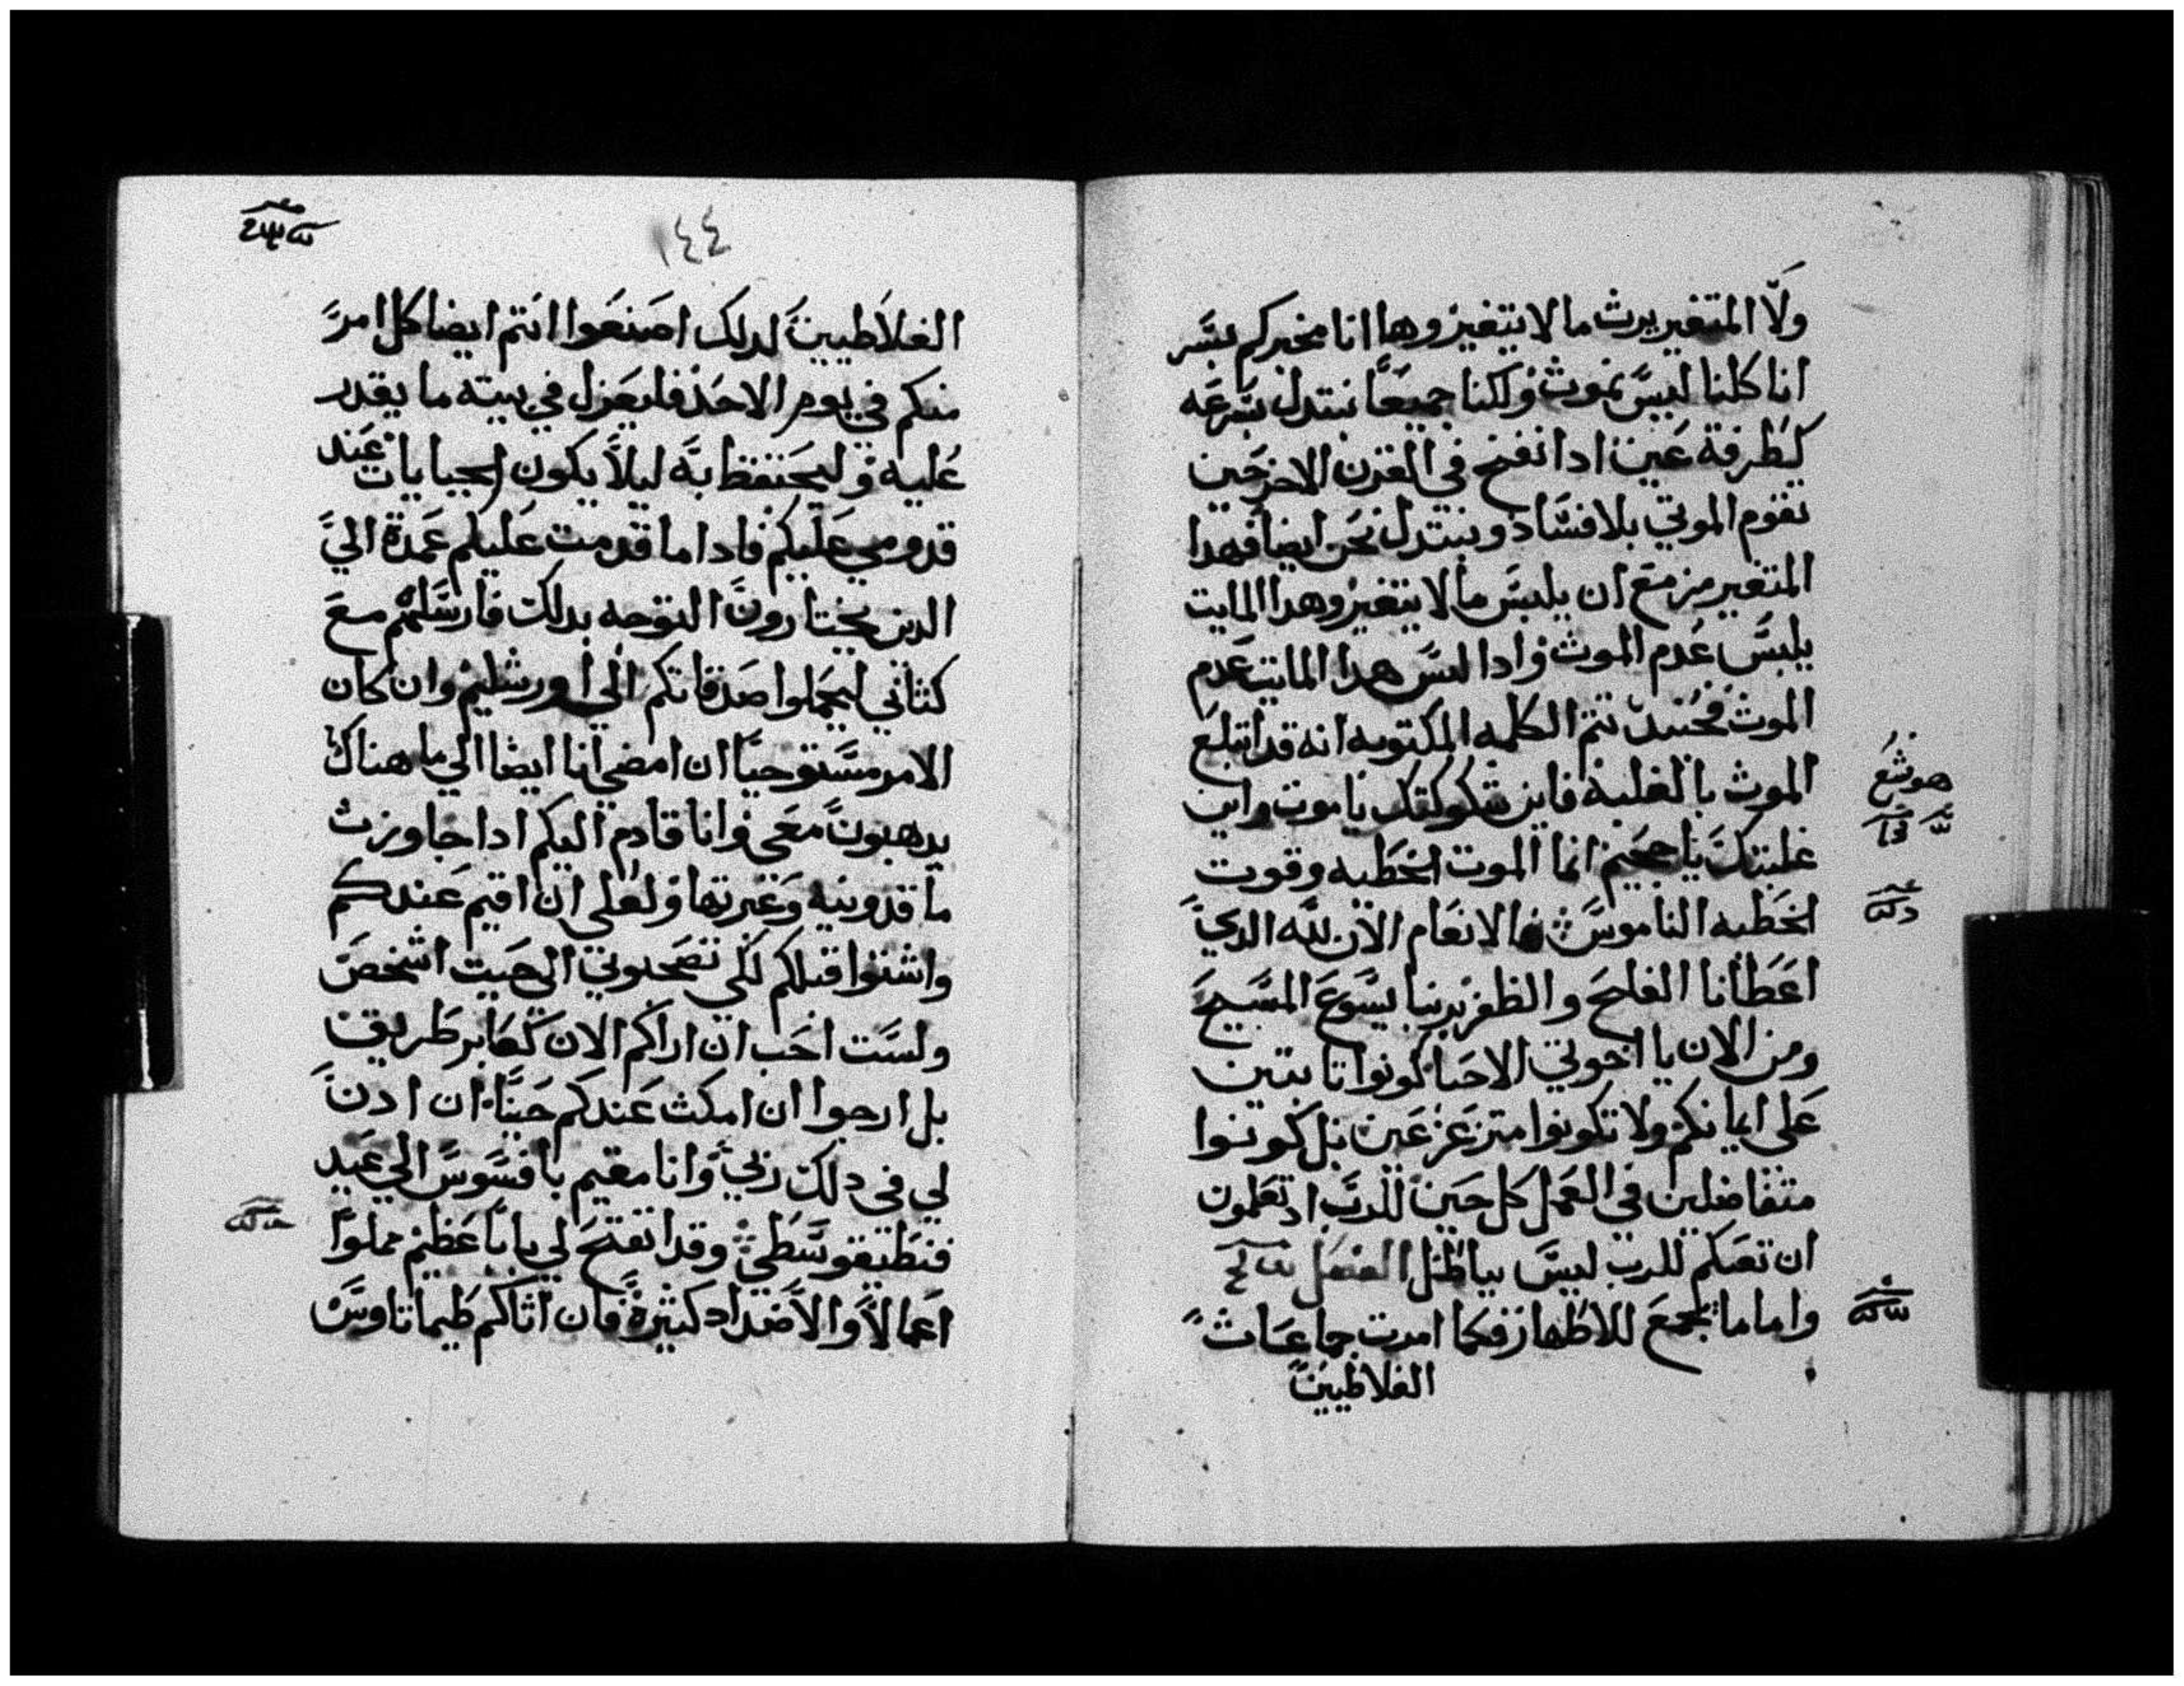 ولا المتغير يرث ما لا يتغير وها انا مخبركم بسر
انا كلنا ليس نموت ولكنا جميعا نبتدل بسرعه
كطرفة عين ادا نفخ في القرن الاخر حين
تقوم الموتي بلا فساد ونبتدل نحن ايضا فهدا
المتغير مزمع ان يلبس ما لا يتغير وهدا المايت
يلبس عدم الموت وادا لبس هدا المايت عدم
الموت فحينيد تتم الكلمه المكتوبه انه قد ابتلع
الموت بالغلبة فاين شكوكتك يا موت واين
غلبتك يا جحيم انما الموت الخطيه وقوت
الخطيه الناموس فالانعام الان لله الدي
اعطانا الفلح والظفر بربنا يسوع المسيح
ومن الان يا اخوتي الاحبا كونوا تابتين
علي ايمانكم ولا تكونوا متزعزعين بل كونوا
متفاضلين في العمل كل حين للرب اد تعلمون
ان تعبكم للرب ليس بباطل الفصل
واما ما يجمع للاطهار فكما امرت جماعات
الغلاطيين
هوشع
١٤٤
الغلاطيين لدلك اصنعوا انتم ايضا كل امر
منكم في يوم الاحد فليعزل في بيته ما يقدر
عليه وليحتفظ به ليلا يكون الجبايات عند
قدومي عليكم فادا ما قدمت عليكم عمدة الي
الدين يختارون التوجه بدلك فارسلهم مع
كتابي ليحملوا صدقاتكم الي اورشليم وان كان
الامر مستوجبا ان امضي انا ايضا الي ما هناك
يدهبون معي وانا قادم اليكم ادا جاوزت
ماقدونيه وعبرتها ولعلي ان اقيم عندكم
واشتوا قبلكم لكي تصحبوني الي حيت اشخص
ولست احب ان اراكم الان كعابر طريق
بل ارجوا ان امكث عندكم حينا ان ادن
لي في دلك ربي وانا مقيم بافسوس الي عيد
فنطيقوسطي وقد انفتح لي بابا عظيم مملوا
اعمالا والاضداد كثيرة فان اتاكم طيماتاوس